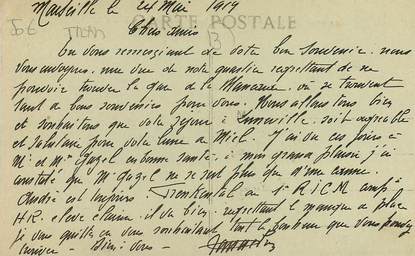 Marseille le 24 Mai 1919
CARTE POSTALE
Chers amis
En vous remerciant de votre bon souvenir, nous
vous envoyons une vue de notre quartier regrettant de ne
pouvoir trouver la rue de la où se trouvent
tant de bons souvenirs pour vous. Nous allons tous bien
et souhaitons que votre séjour à Luneville soit agréable
et pour votre lune de Miel. J'ai vu ces jours ci
Mr et Mme Gazel en bonne santé, à mon grand plaisir j'ai
constaté que Mr Gazel ne se sert plus que d'une canne.
André est toujours au 1er R.I.C.M. comp.
H.R. élève il va bien, regrettant le manque de place
je vous quitte en vous souhaitant tout le bonheur que vous pouvez